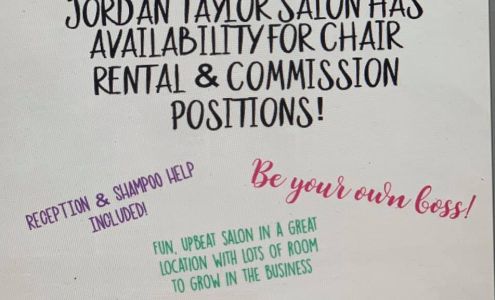 JORDAN TAYLOR SALON HAS
AVAILABILITY FOR CHAIR
RENTAL & COMMISSION
POSITIONS!
RECEPTION & SHAMPOO HELP
INCLUDED!
Be your own boss!
FUN, UPBEAT SALON IN A GREAT
LOCATION WITH LOTS OF ROOM
TO GROW IN THE BUSINESS